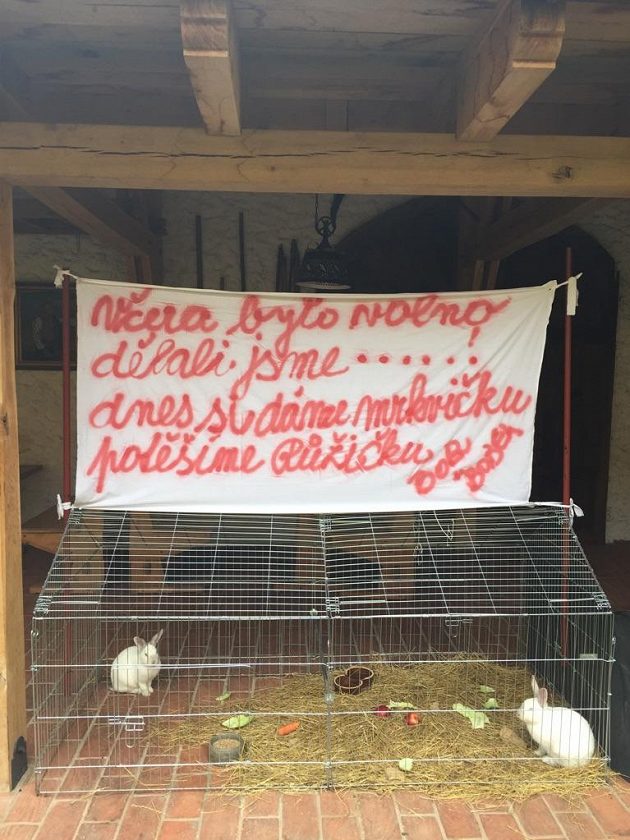 Včera bylo volno
dělali jsme ......!
dnes si dáme mrkvičku
potěšíme Růžičku
BOB